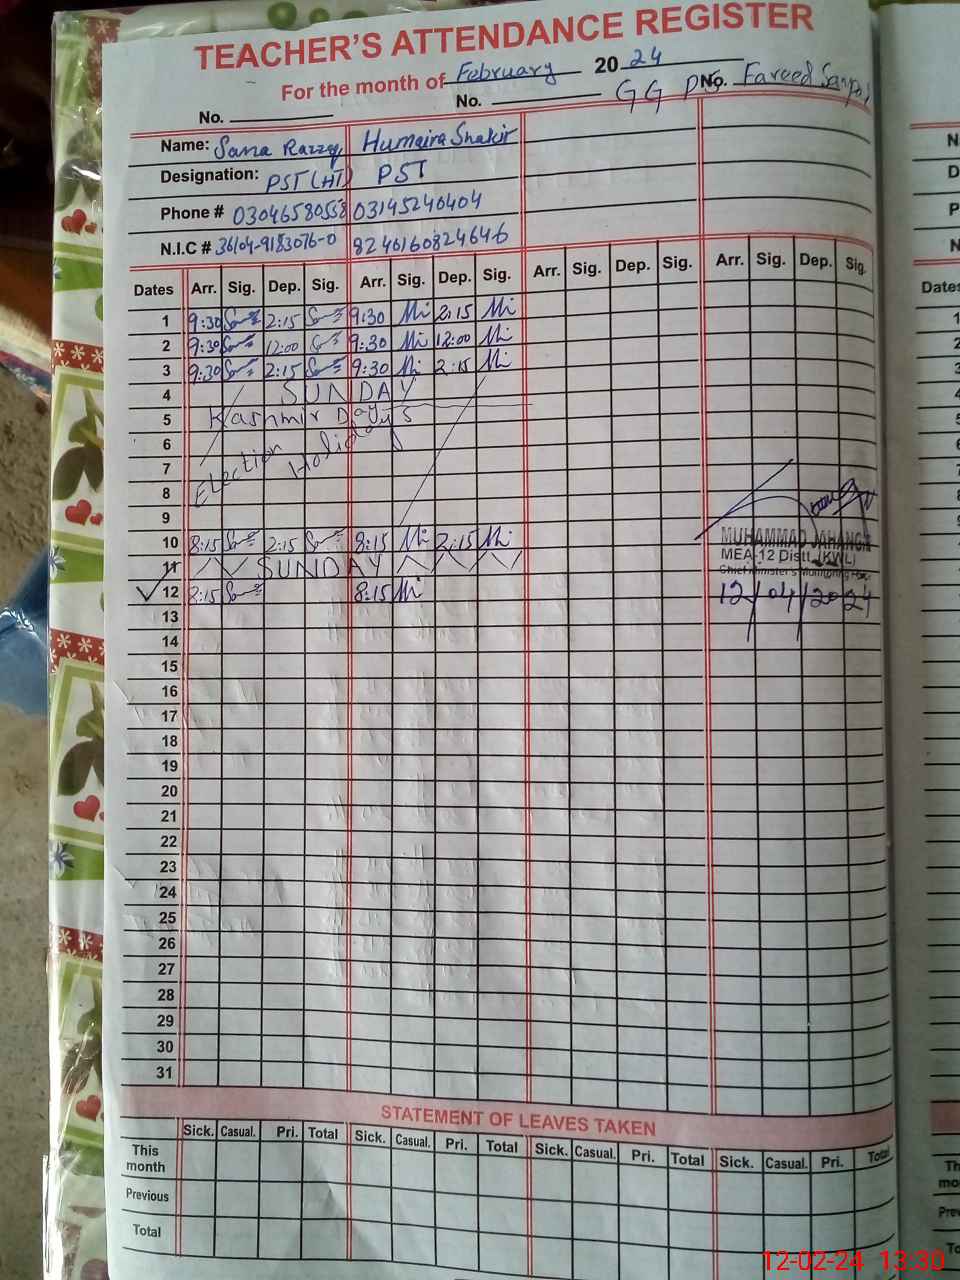 TEACHER'S ATTENDANCE REGISTER
For the month of February 2024
No. No. No. GG PS Fareed
Name: Sana Razzaq Humaira Shakir
Designation: PST (HT) PST
Phone # 03046580558 03145240404
N.I.C # 36104-9183076-0 8240160324646
Dates Arr. Sig. Dep. Sig. Arr. Sig. Dep. Sig. Arr. Sig. Dep. Sig. Arr. Sig. Dep. Sig.
1 9:30 2:15 9:30 2:15
2 9:30 12:00 9:30 12:00
3 9:30 2:15 9:30 2:15
4 SUNDAY
5 Kashmir Day
6
7 Election Holidays
8
9
10 8:15 2:15 8:15 2:15
MUHAMMAD JAHANGIR
MEA-12 Distt. (KWL)
Chief Minister's Monitoring
11 SUNDAY
12 8:15 8:15 12/04/2024
13
14
15
16
17
18
19
20
21
22
23
24
25
26
27
28
29
30
31
STATEMENT OF LEAVES TAKEN
Sick. Casual. Pri. Total Sick. Casual. Pri. Total Sick. Casual. Pri. Total Sick. Casual. Pri. Total
This month
Previous
Total
12-02-24 13:30